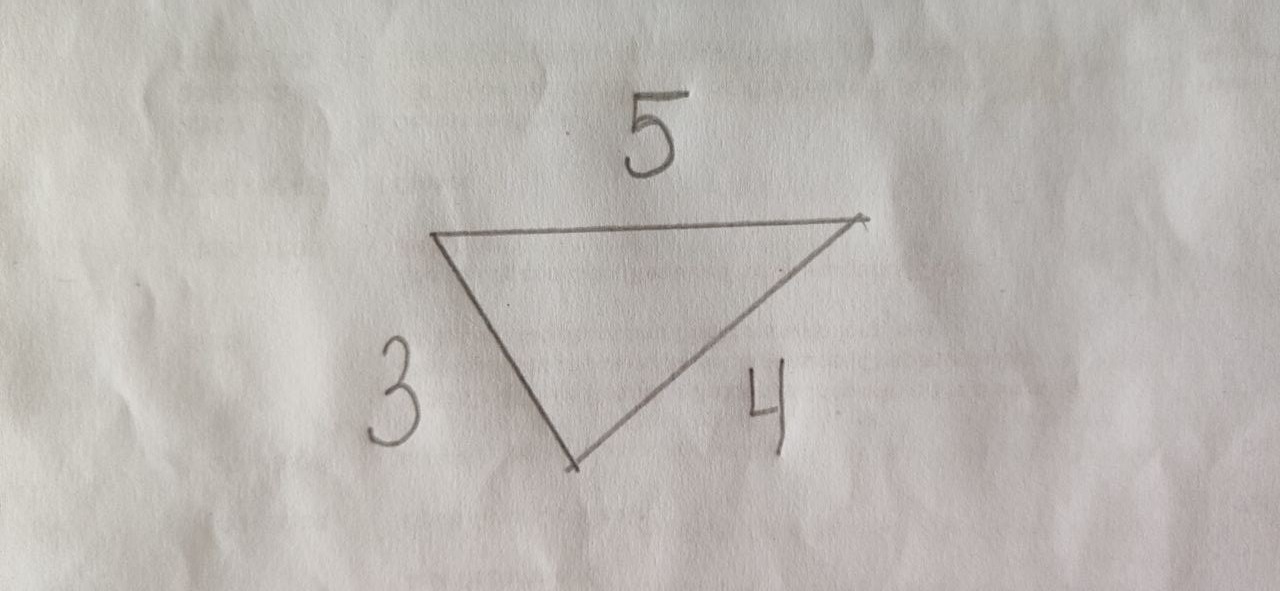 5
3
4